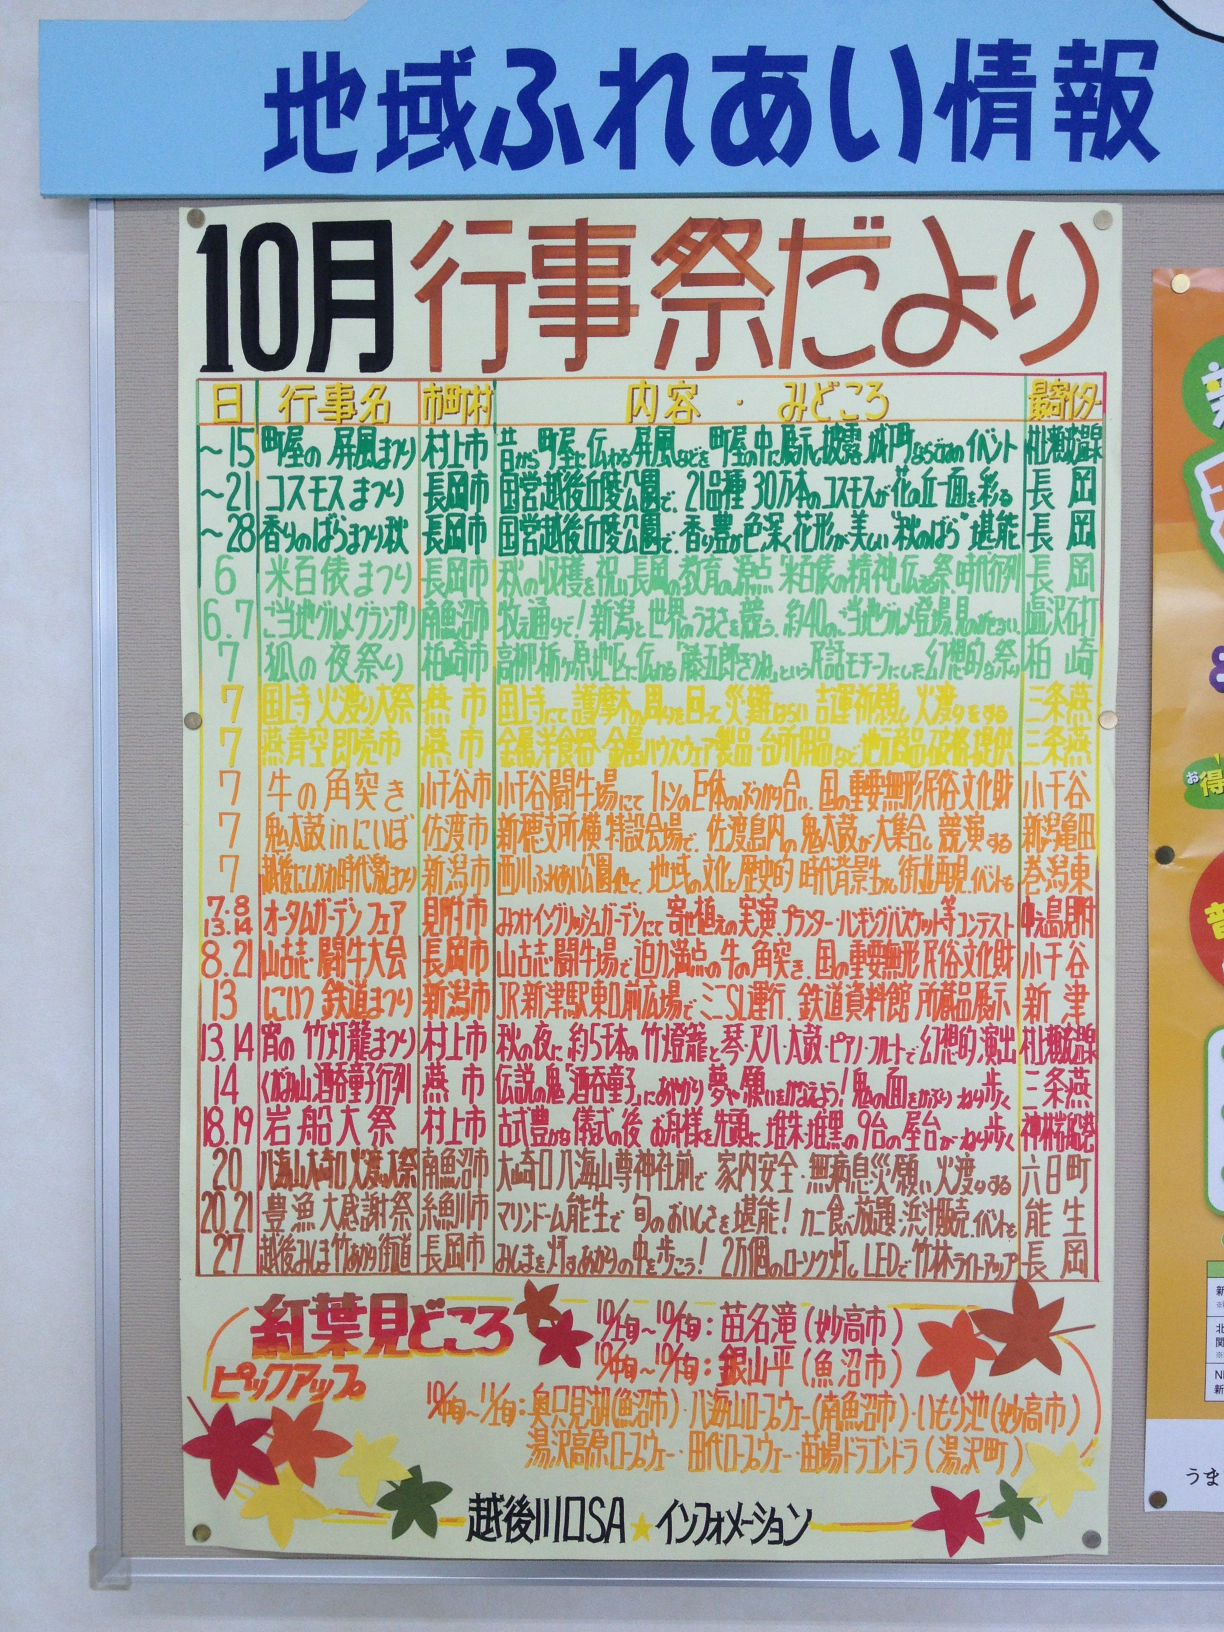 地域ふれあい情報
10月行事祭だより
日 行事名 市町村 内容・みどころ 最寄インター
～15 町屋の屏風まつり 村上市 昔から町屋に伝わる屏風などを町屋の中に展示し披露。城下町ならではのイベント 村上瀬波温泉
～21 コスモスまつり 長岡市 国営越後丘陵公園で、21品種30万本のコスモスが花の丘一面を彩る 長岡
～28 香りのばらまつり秋 長岡市 国営越後丘陵公園で、香り豊か色深く花形が美しい"秋のばら"堪能 長岡
6 米百俵まつり 長岡市 秋の収穫を祝い長岡の教育の源点"米百俵の精神"伝える祭、時代行列 長岡
6.7 ご当地グルメグランプリ 南魚沼市 牧之通りで!新潟と世界のうまさを競う、約40のご当地グルメ登場見のがせない 塩沢石打
7 狐の夜祭り 柏崎市 高柳栃ヶ原地区に伝わる「藤五郎きつね」という民話モチーフにした幻想的な祭り 柏崎
7 国上寺火渡り大祭 燕市 国上寺にて護摩木の周りを回って災難はらい吉運祈願し火渡りをする 三条燕
7 燕青空即売市 燕市 金属洋食器・金属ハウスウェア製品・台所用品など地元商品破格提供 三条燕
7 牛の角突き 小千谷市 小千谷闘牛場にて1トンの巨体のぶつかり合い、国の重要無形民俗文化財 小千谷
7 鬼太鼓inにいぼ 佐渡市 新穂支所横特設会場で、佐渡島内の鬼太鼓が大集合し競演する 新潟亀田
7 越後にしかわ時代激まつり 新潟市 西川ふれあい公園他で、地域の文化と歴史的時代背景生かし街並再現、イベントも 巻潟東
7・8 13.14 オータムガーデンフェア 見附市 みつけイングリッシュガーデンにて寄せ植えの実演・プランター・ハンギングバスケット等コンテスト 中之島見附
8.21 山古志闘牛大会 長岡市 山古志闘牛場で迫力満点の牛の角突き、国の重要無形民俗文化財 小千谷
13 にいつ鉄道まつり 新潟市 JR新津駅東口前広場でミニSL運行、鉄道資料館所蔵品展示 新津
13.14 宵の竹灯籠まつり 村上市 秋の夜に約5千本の竹燈籠と琴・尺八・太鼓・ピアノ・フルートで幻想的演出 村上瀬波温泉
14 くがみ山酒呑童子行列 燕市 伝説の鬼「酒呑童子」にあやかり夢や願いをかなえよう!鬼の面をかぶりねり歩く 三条燕
18.19 岩船大祭 村上市 古式豊かな儀式の後お舟様を先頭に堆朱堆黒の9台の屋台がねり歩く 神林岩船港
20 八海山大崎口火渡り大祭 南魚沼市 大崎口八海山尊神社前で家内安全・無病息災願い火渡りする 六日町
20.21 豊漁大感謝祭 糸魚川市 マリンドーム能生で旬のおいしさを堪能!カニ食べ放題・浜汁販売、イベントも 能生
27 越後みしま竹あかり街道 長岡市 みしまを灯すあかりの中を歩こう! 2万個のローソク灯しLEDで竹林ライトアップ 長岡
紅葉見どころ
ピックアップ
10/上旬～10/中旬：苗名滝(妙高市)
10/中旬～10/下旬：銀山平(魚沼市)
10/中旬～11/上旬：奥只見湖(魚沼市)・八海山ロープウェー(南魚沼市)・いもり池(妙高市)
湯沢高原ロープウェー・田代ロープウェー・苗場ドラゴンドラ(湯沢町)
越後川口SA★インフォメーション
お得
うま